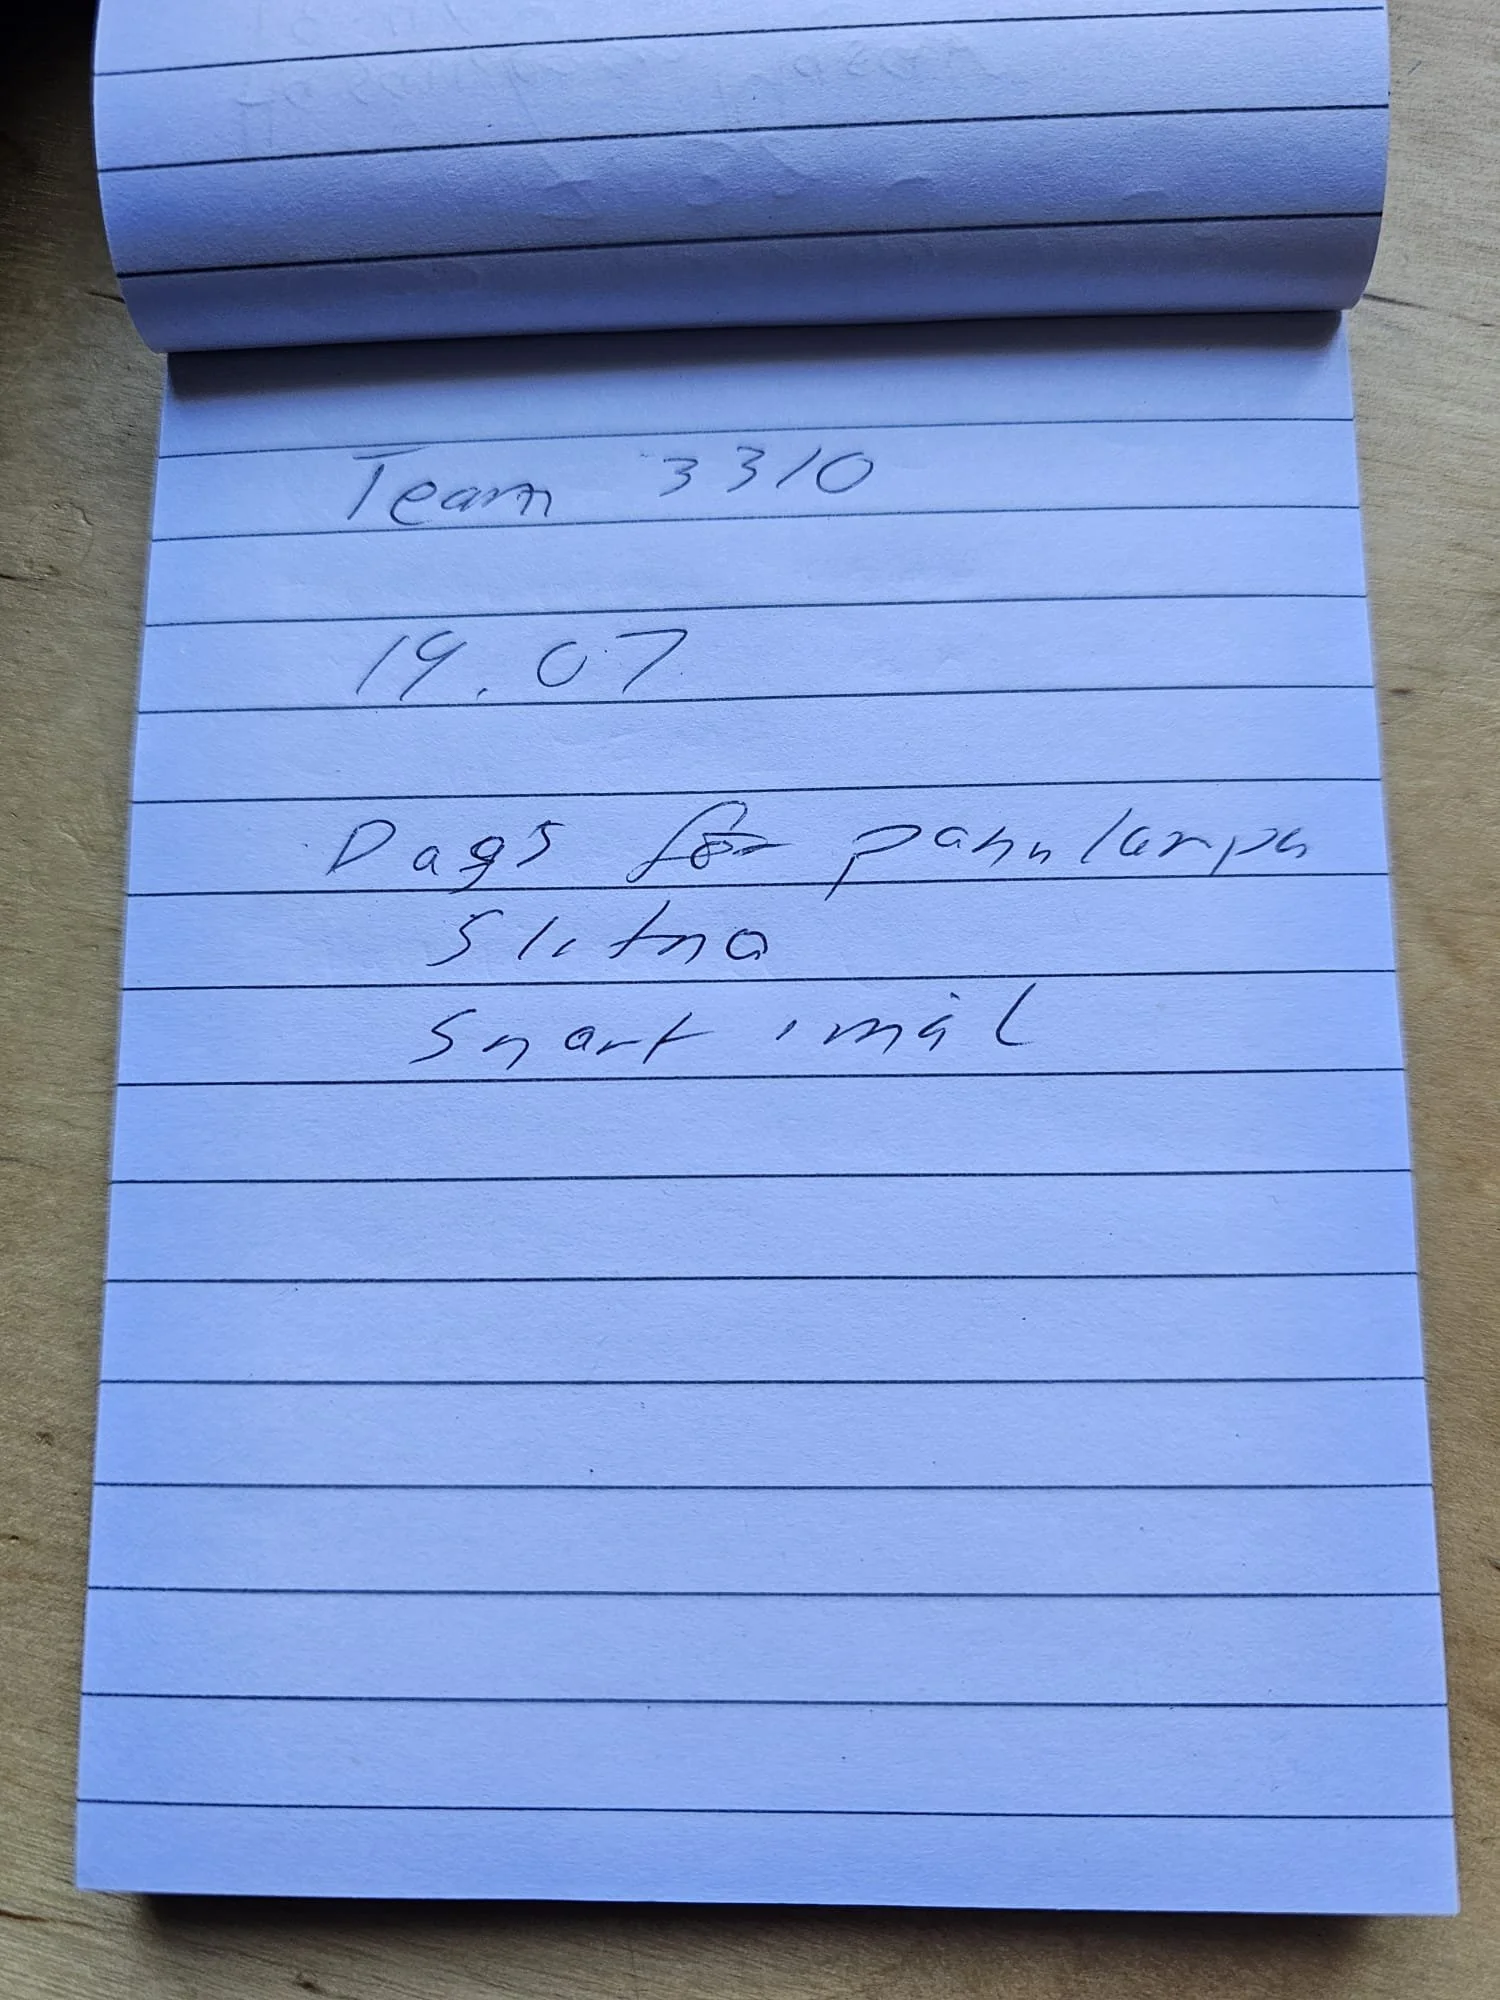 Team 3310
19.07
Dags för pannlampa
Slitna
Snart i mål